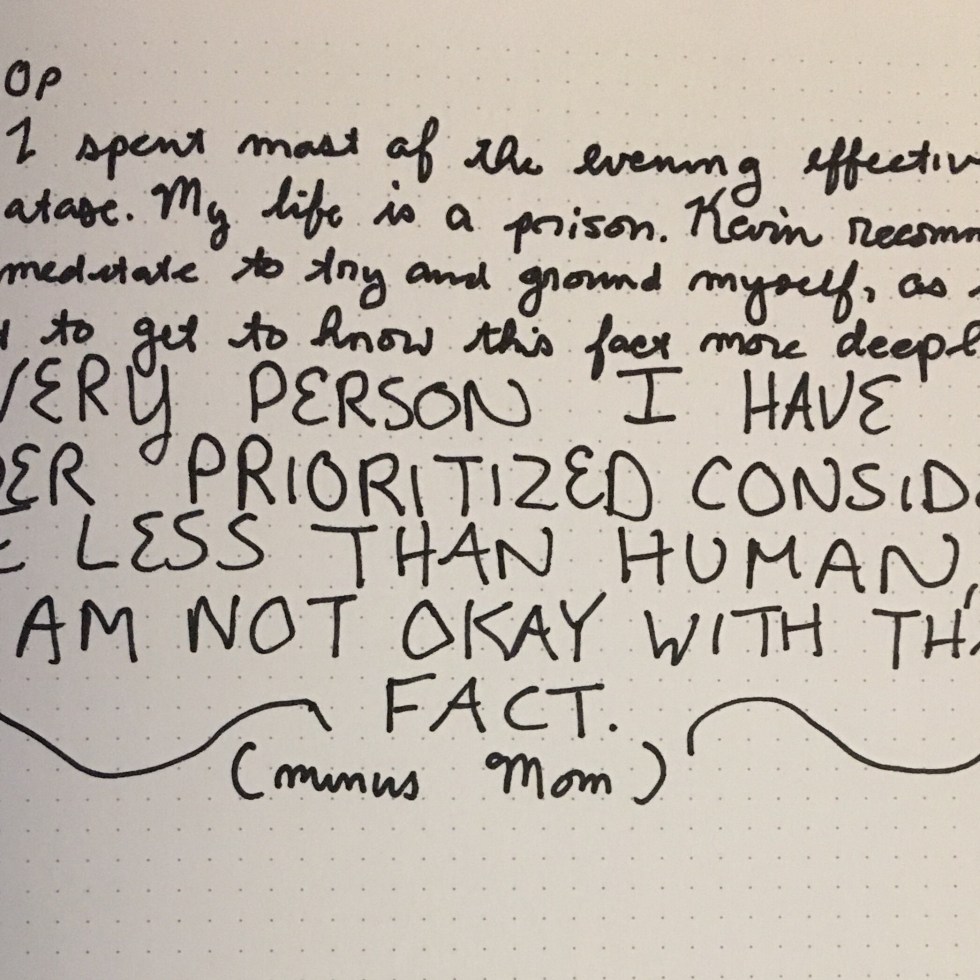 OP
I spent most of the evening effectiv
atase. My life is a prison. Kevin recomm
meditate to try and ground myself, as
to get to know this fact more deepl
VERY PERSON I HAVE
ER PRIORITIZED CONSID
E LESS THAN HUMAN,
AM NOT OKAY WITH THA
FACT.
(minus Mom)